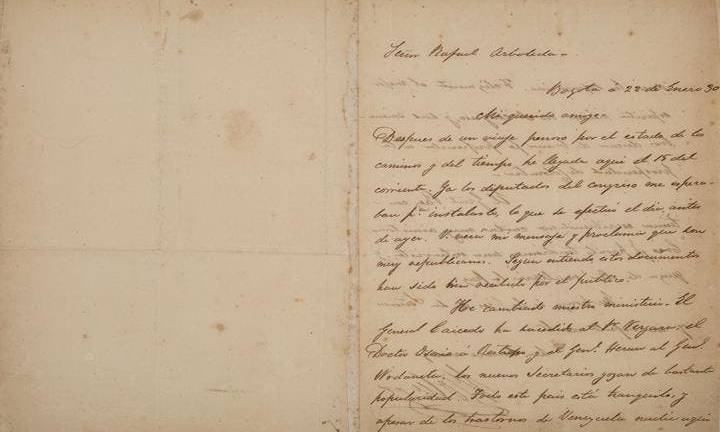 Señor Rafael Arboleda.
Bogota a 22 de Enero 30
Mi querido amigo:
Despues de un viaje penoso por el estado de los
caminos y del tiempo, he llegado aqui el 15 del
corriente. Ya los deputados del congreso me espera-
ban pa. instalarlo, lo que se efectuó el dia antes
de ayer. V. verá mi mensaje y proclama que son
muy republicanos. Segun entiendo estos documentos
han sido bien recibidos por el publico.
He cambiado nuestro ministerio. El
General Caicedo ha sucedido al Sr. Vergara, el
Doctor Osorio á Restrepo y al Genl. Heran al Genl.
Urdaneta. Los nuevos Secretarios gozan de bastante
popularidad. Todo este pais está tranquilo, y
apesar de los trastornos de Venezuela nadie aqui